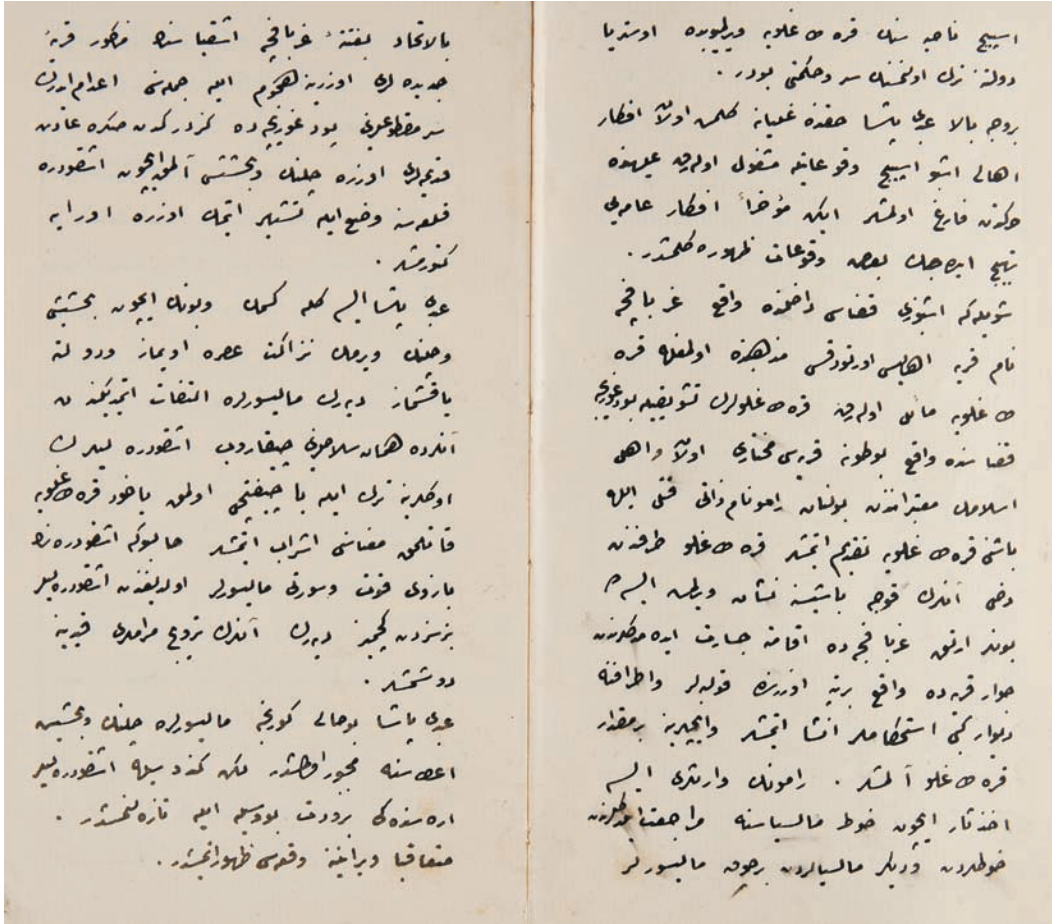 اسپیچ ناحیه سنك قره طاغلویه ویرلمیوبده اوستریا
دولته ترك اولنمسنك سر وحكمتی بودر .
بروجه بالا عبدی پاشا حقنده غلیانه كلمش اولان افكار
اهالی اشبو اسپیچ وقوعاتیله مشغول اوله رق علیهنده
حركتدن فارغ اولمشلر ایكن مؤخراً افكار عامه یی
تهییج ایده جك بعض وقوعات ظهوره كلمشدر .
شویله كه اشبوزی قضاسی داخلنده واقع غربافچه
نام قریه اهالیسی اورتودقس مذهبنده اولمغله قره
طاغلویه مائل اوله رق قره طاغلولرك تشویقیله پودغوریچه
قضاسنده واقع بوطونه قریه سی مختاری اولان واهل
اسلامك معتبراندن بولنان رامو نام ذاتی قتل ایله
باشنی قره طاغلویه تقدیم ایتمشلر قره طاغلو طرفندن
دخی آنلرك قوجه باشیسنه نشان ویرلمش ایسه ده
بونلر ارتق غربافچه ده اقامته جسارت ایده مدكلرندن
جوار قریه ده واقع برتپه اوزرینه قوله لر واطرافنه
دیوار كبی استحكاملر انشا ایتمشلر وایچلرینه برمقدار
قره طاغلو آلمشلر . رامونك وارثلری ایسه
اخذ ثار ایچون خوط مالسیاسنه مراجعت ایتدكلرندن
خوطلردن ودیكر مالسیالردن برچوق مالیسورلر
بالاتحاد بغتةً غربافچه اشقیاسنك مذكور قریهٔ
جدیده لری اوزرینه هجوم ایله جمله سنی اعدام ایدرك
سر مقطوعلرینی پودغوریچه ده كزدردكدن صكره عادت
قدیمه لری اوزره چلنك وبخششی آلمق ایچون اشقودره
قلعه سنه وضع ایله تشهیر ایتمك اوزره اورایه
كتورمشلر .
عبدی پاشا ایسه كله كسمك وبونك ایچون بخشیش
وچلنك ویرمك نزاكت عصره اویماز ودولته
یاقشماز دیه رك مالیسورلره التفات ایتمدیكندن
آنلرده همان سلاحلرینی چیقاروب اشقودره لیلرك
اوكلرینه ترك ایله یا چفتجی اولمق یاخود قره طاغلویه
قاتلمق معناسنی اشراب ایتمشلر حالبوكه اشقودره نك
بازوی قوت وسورتی مالیسورلر اولدیغندن اشقودره لیلر
بز سزدن كچمیز دیه رك آنلرك ترویج مراملری قیدینه
دوشمشلر .
عبدی پاشا بوحالی كورنجه مالیسورلره چلنك وبخشیش
اعطاسنه مجبور اولمشدر لكن كندوسیله اشقودره لیلر
اره سنده كی برودت بووسیله ایله تازه لنمشدر .
متعاقباً ویرانینه وقعه سی ظهور ایتمشدر .